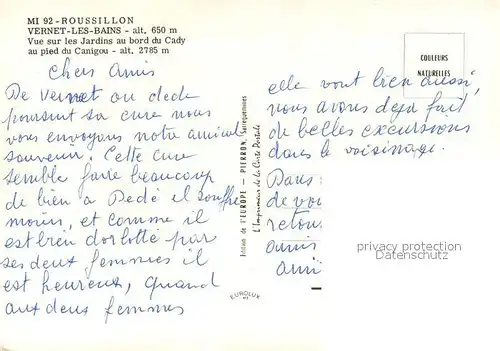 MI 92 - ROUSSILLON
VERNET-LES-BAINS - alt. 650 m
Vue sur les Jardins au bord du Cady
au pied du Canigou - alt. 2785 m
Chers Amis
De Vernet ou dede
poursuit sa cure nous
vous envoyons notre amical
souvenir. Cette cure
semble faire beaucoup
de bien a Dedé il souffre
moins, et comme il
est bien dorlotté par
ses deux femmes il
est heureux, quand
aux deux femmes
Edition de l'EUROPE - PIERRON, Sarreguemines
L'Imprimerie de la Carte Postale
EUROLUX
COULEURS
NATURELLES
elle vont bien aussi
nous avons deja fait
de belles excursions
dans le voisinage.
Dans
de vou
retou
amis
ami
privacy protection
Datenschutz